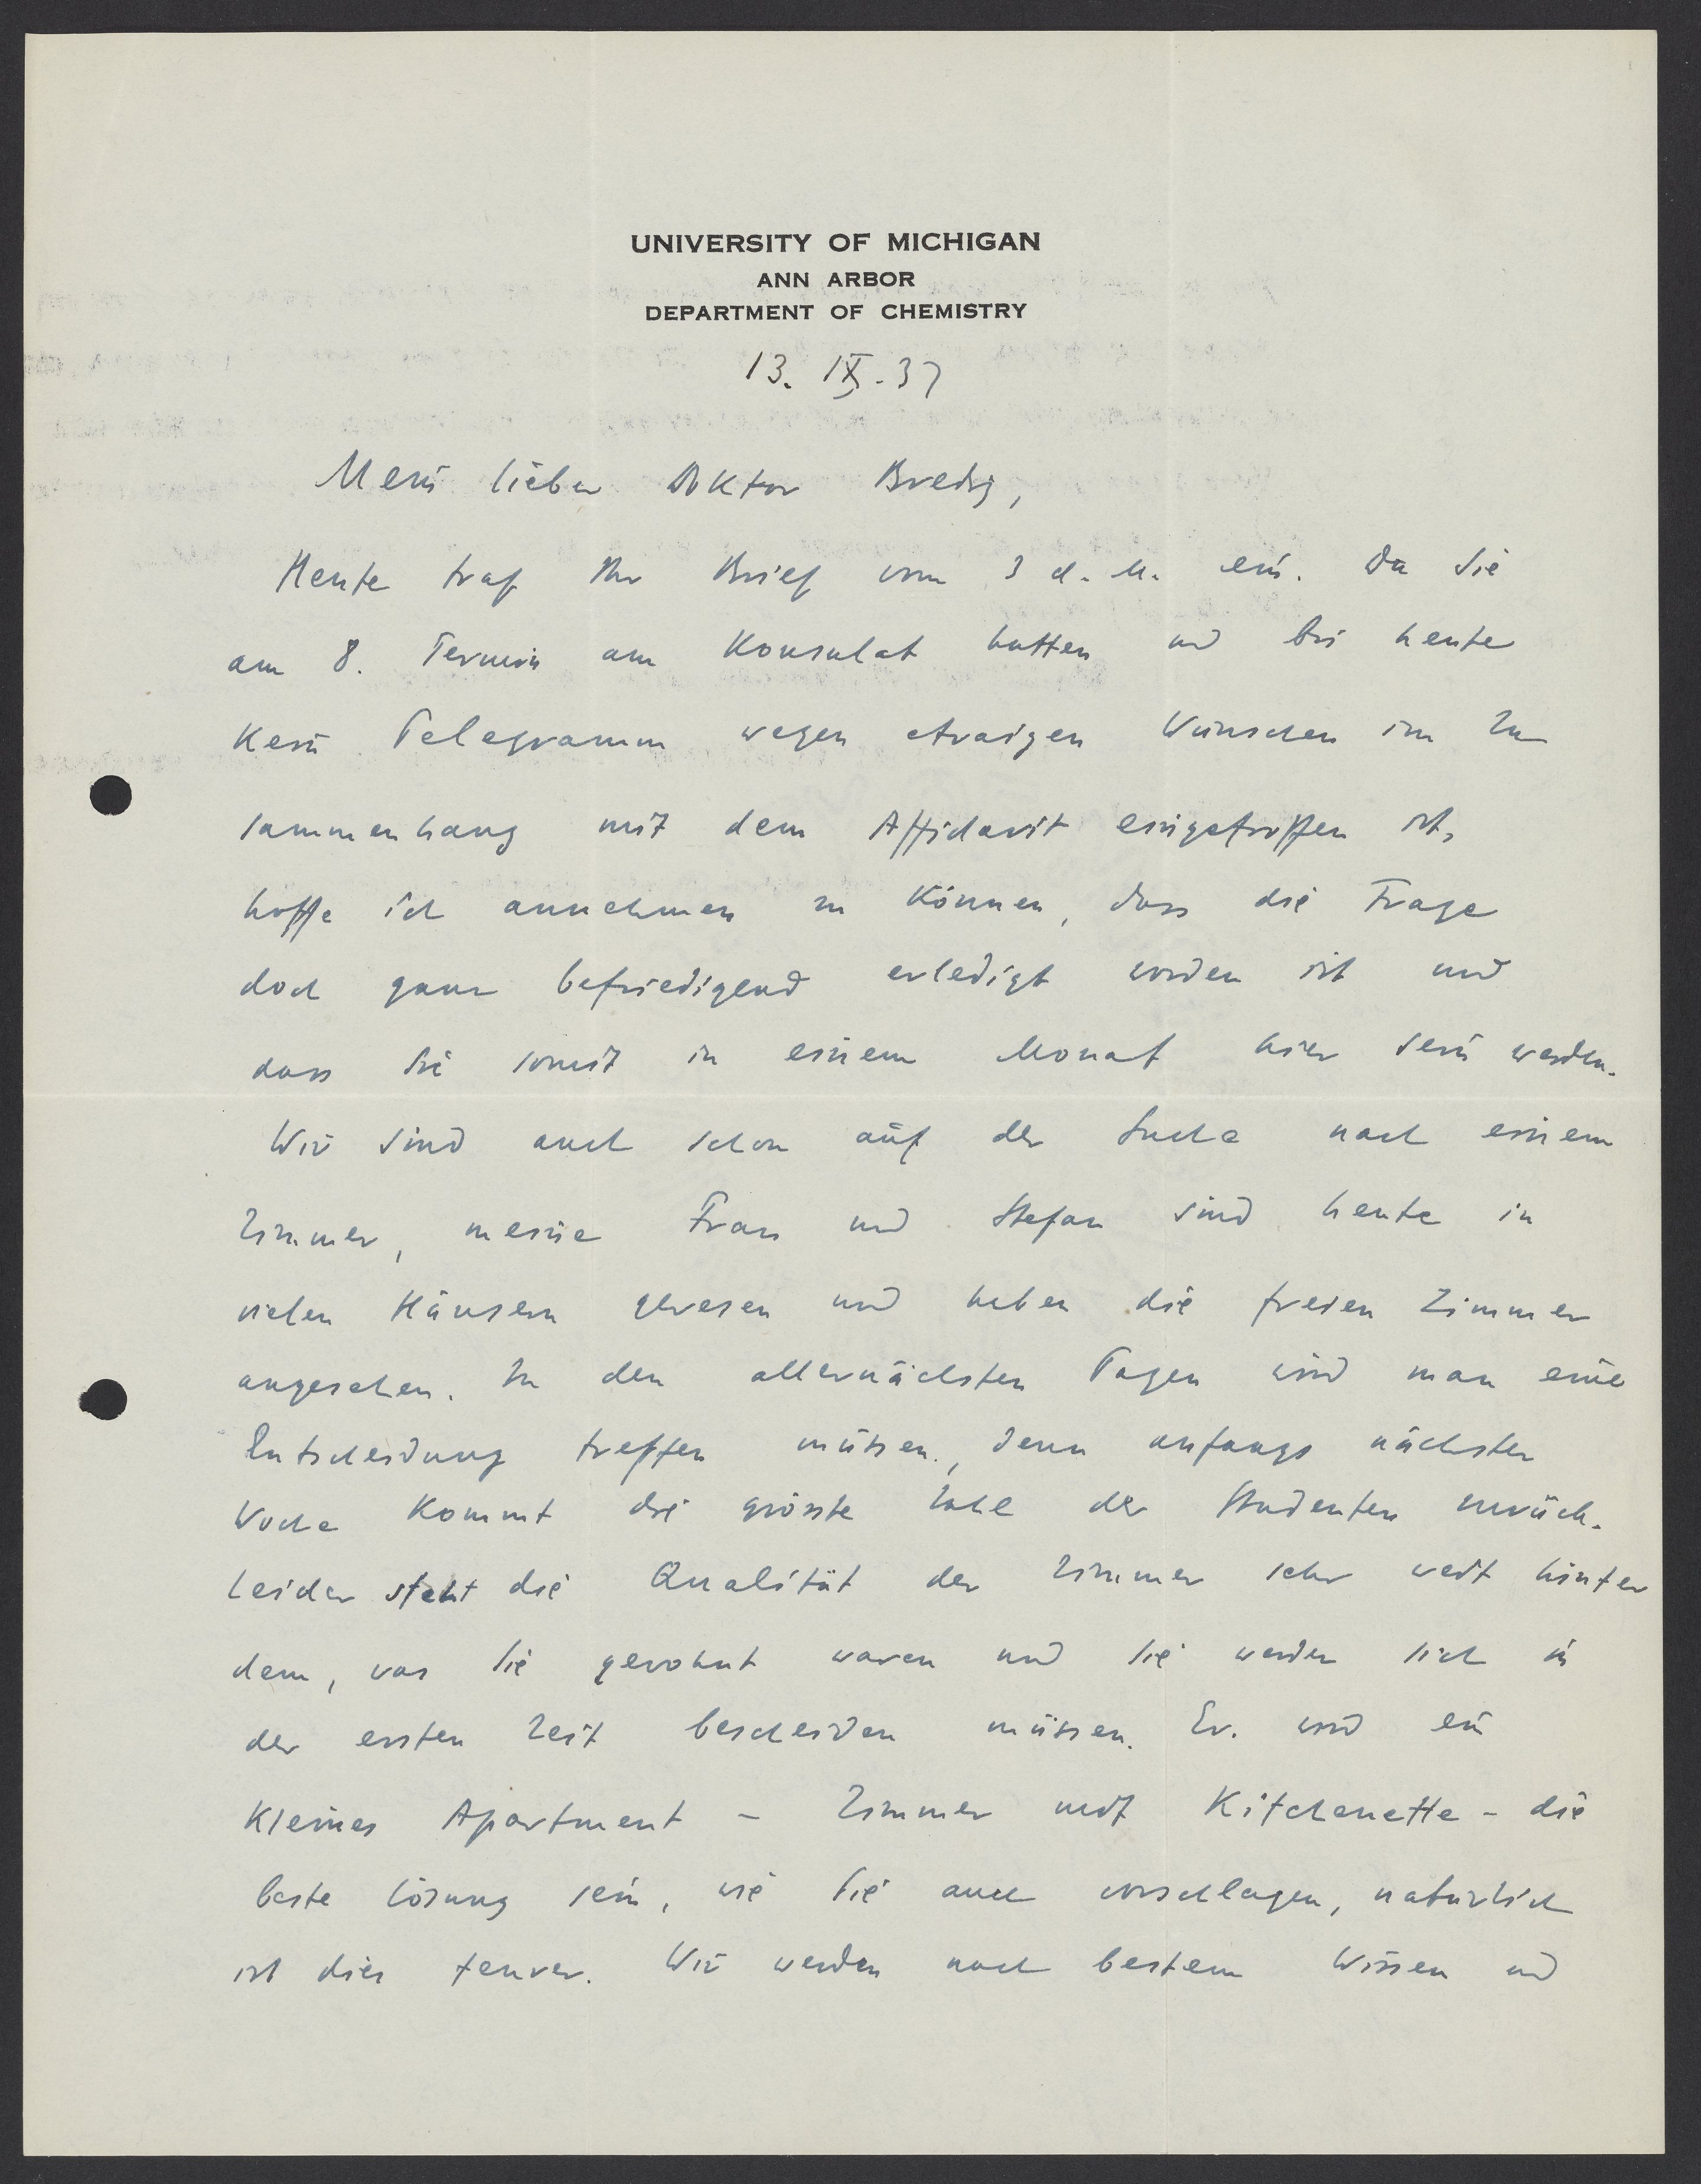 UNIVERSITY OF MICHIGAN
ANN ARBOR
DEPARTMENT OF CHEMISTRY
13. IX. 37
Mein lieber Doktor Bredig,
Heute traf Ihr Brief vom 3 d. M. ein. Da Sie
am 8. Termin am Konsulat hatten und bis heute
kein Telegramm wegen etwaigen Wünschen im Zu
sammenhang mit dem Affidavit eingetroffen ist,
hoffe ich annehmen zu können, dass die Frage
doch ganz befriedigend erledigt worden ist und
dass Sie somit in einem Monat hier sein werden.
Wir sind auch schon auf der Suche nach einem
Zimmer, meine Frau und Stefan sind heute in
vielen Häusern gewesen und haben die freien Zimmer
angesehen. In den allernächsten Tagen wird man eine
Entscheidung treffen müssen, denn anfangs nächster
Woche kommt die grösste Zahl der Studenten zurück.
Leider steht die Qualität der Zimmer sehr weit hinter
dem, was Sie gewohnt waren und Sie werden sich in
der ersten Zeit bescheiden müssen. Ev. wird ein
kleines Apartment – Zimmer mit Kitchenette – die
beste Lösung sein, wie Sie auch vorschlagen, natürlich
ist dies teurer. Wir werden nach bestem Wissen und